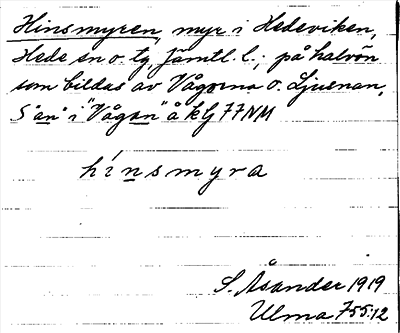 Hinsmyren, myr i Hedeviken,
Hede sn o. tg, Jämtl. l.; på halvön
som bildas av Vågarna o. Ljusnan,
S "an" i "Vågan" å kG 77NM
hínsmyra
S. Åsander 1919
Ulma 755:12